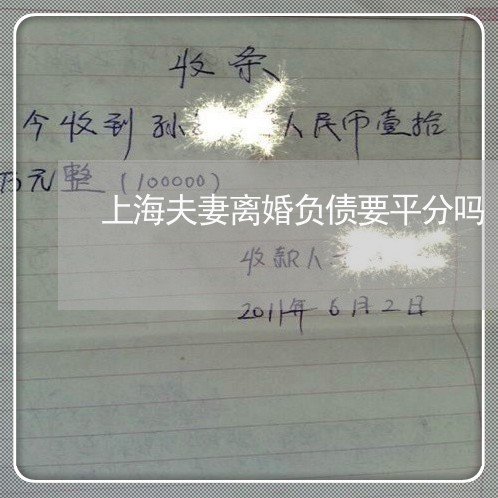 收条
今收到孙人民币壹拾
万元整(100000)
上海夫妻离婚负债要平分吗
收款人
2011年6月2日